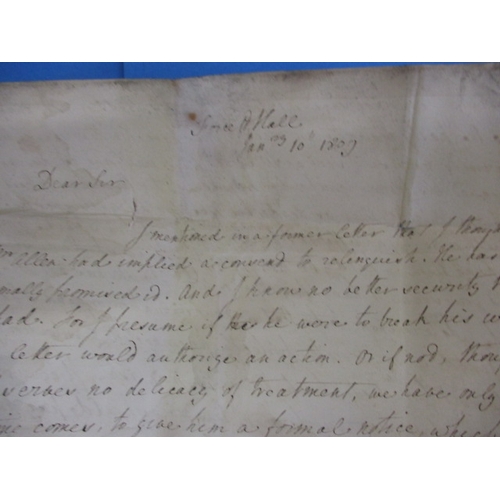 Hall
Jan.ry 10th 1809
Dear Sir
I mentioned in a former letter that I thought
Mr Allen had implied a consent to relinquish. He has
promised it. And I know no better security t
had. For I presume if he were to break his w
letter would authorize an action. Or if not, thou
serves no delicacy of treatment, we have only
comes, to give him a formal notice, which